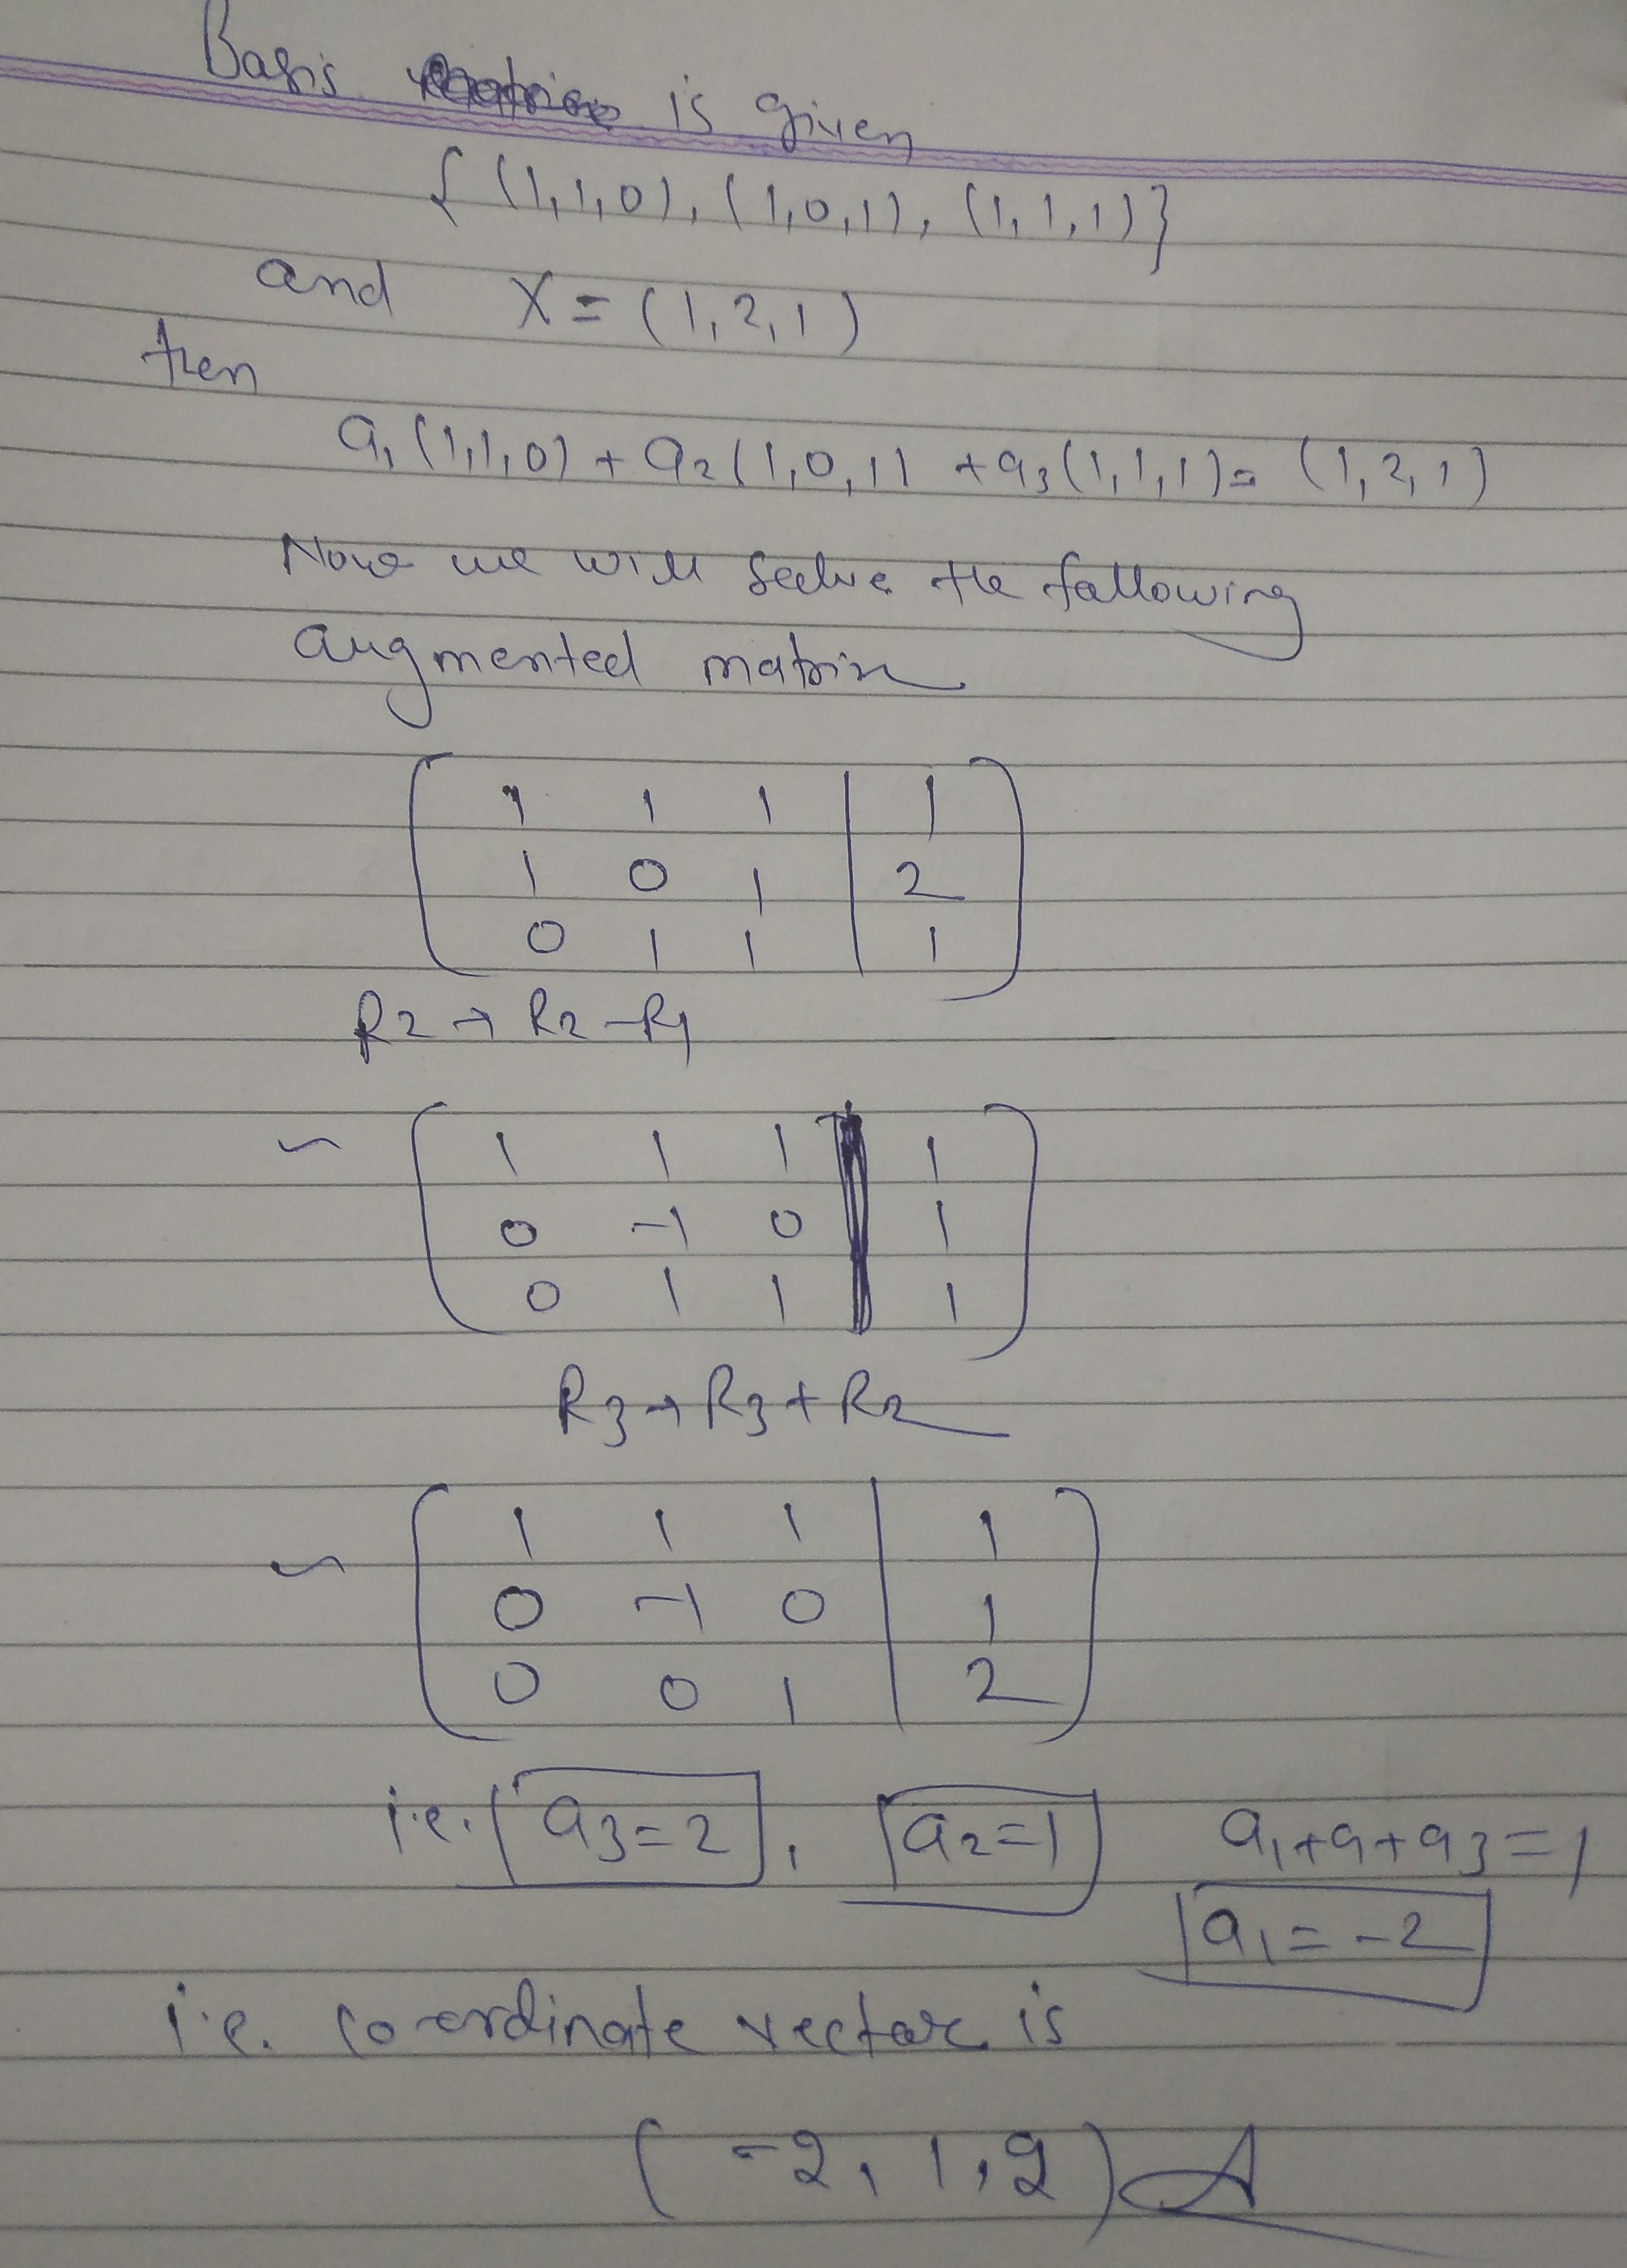 Basis is given
{ (1,1,0), (1,0,1), (1,1,1)}
and X = (1,2,1)
then
a1(1,1,0) + a2(1,0,1) + a3(1,1,1) = (1,2,1)
Now we will solve the following
augmented matrix
1 1 1 | 1
1 0 1 | 2
0 1 1 | 1
R2 → R2 - R1
~ 1 1 1 | 1
0 -1 0 | 1
0 1 1 | 1
R3 → R3 + R2
~ 1 1 1 | 1
0 -1 0 | 1
0 0 1 | 2
i.e. a3 = 2, a2 = 1 a1 + a + a3 = 1
a1 = -2
i.e. co-ordinate vector is
(-2, 1, 2) A